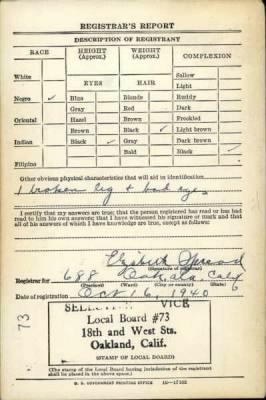 REGISTRAR'S REPORT
DESCRIPTION OF REGISTRANT
RACE HEIGHT (Approx.) WEIGHT (Approx.) COMPLEXION
White Sallow
EYES HAIR Light
Negro ✓ Blue Blonde Ruddy
Gray Red Dark
Oriental Hazel Brown Freckled
Brown Black ✓ Light brown
Indian Black ✓ Gray Dark brown
Bald Black ✓
Filipino
Other obvious physical characteristics that will aid in identification
1 broken leg + bad eyes
I certify that my answers are true; that the person registered has read or has had
read to him his own answers; that I have witnessed his signature or mark and that
all of his answers of which I have knowledge are true, except as follows:
Elizabeth
(Signature of registrar)
Registrar for 688 Oakland Calif
(Precinct) (Ward) (City or county) (State)
Date of registration Oct 16, 1940
SELECTIVE SERVICE
Local Board #73
18th and West Sts.
Oakland, Calif.
(STAMP OF LOCAL BOARD)
73
(The stamp of the Local Board having jurisdiction of the registrant
shall be placed in the above space.)
U. S. GOVERNMENT PRINTING OFFICE